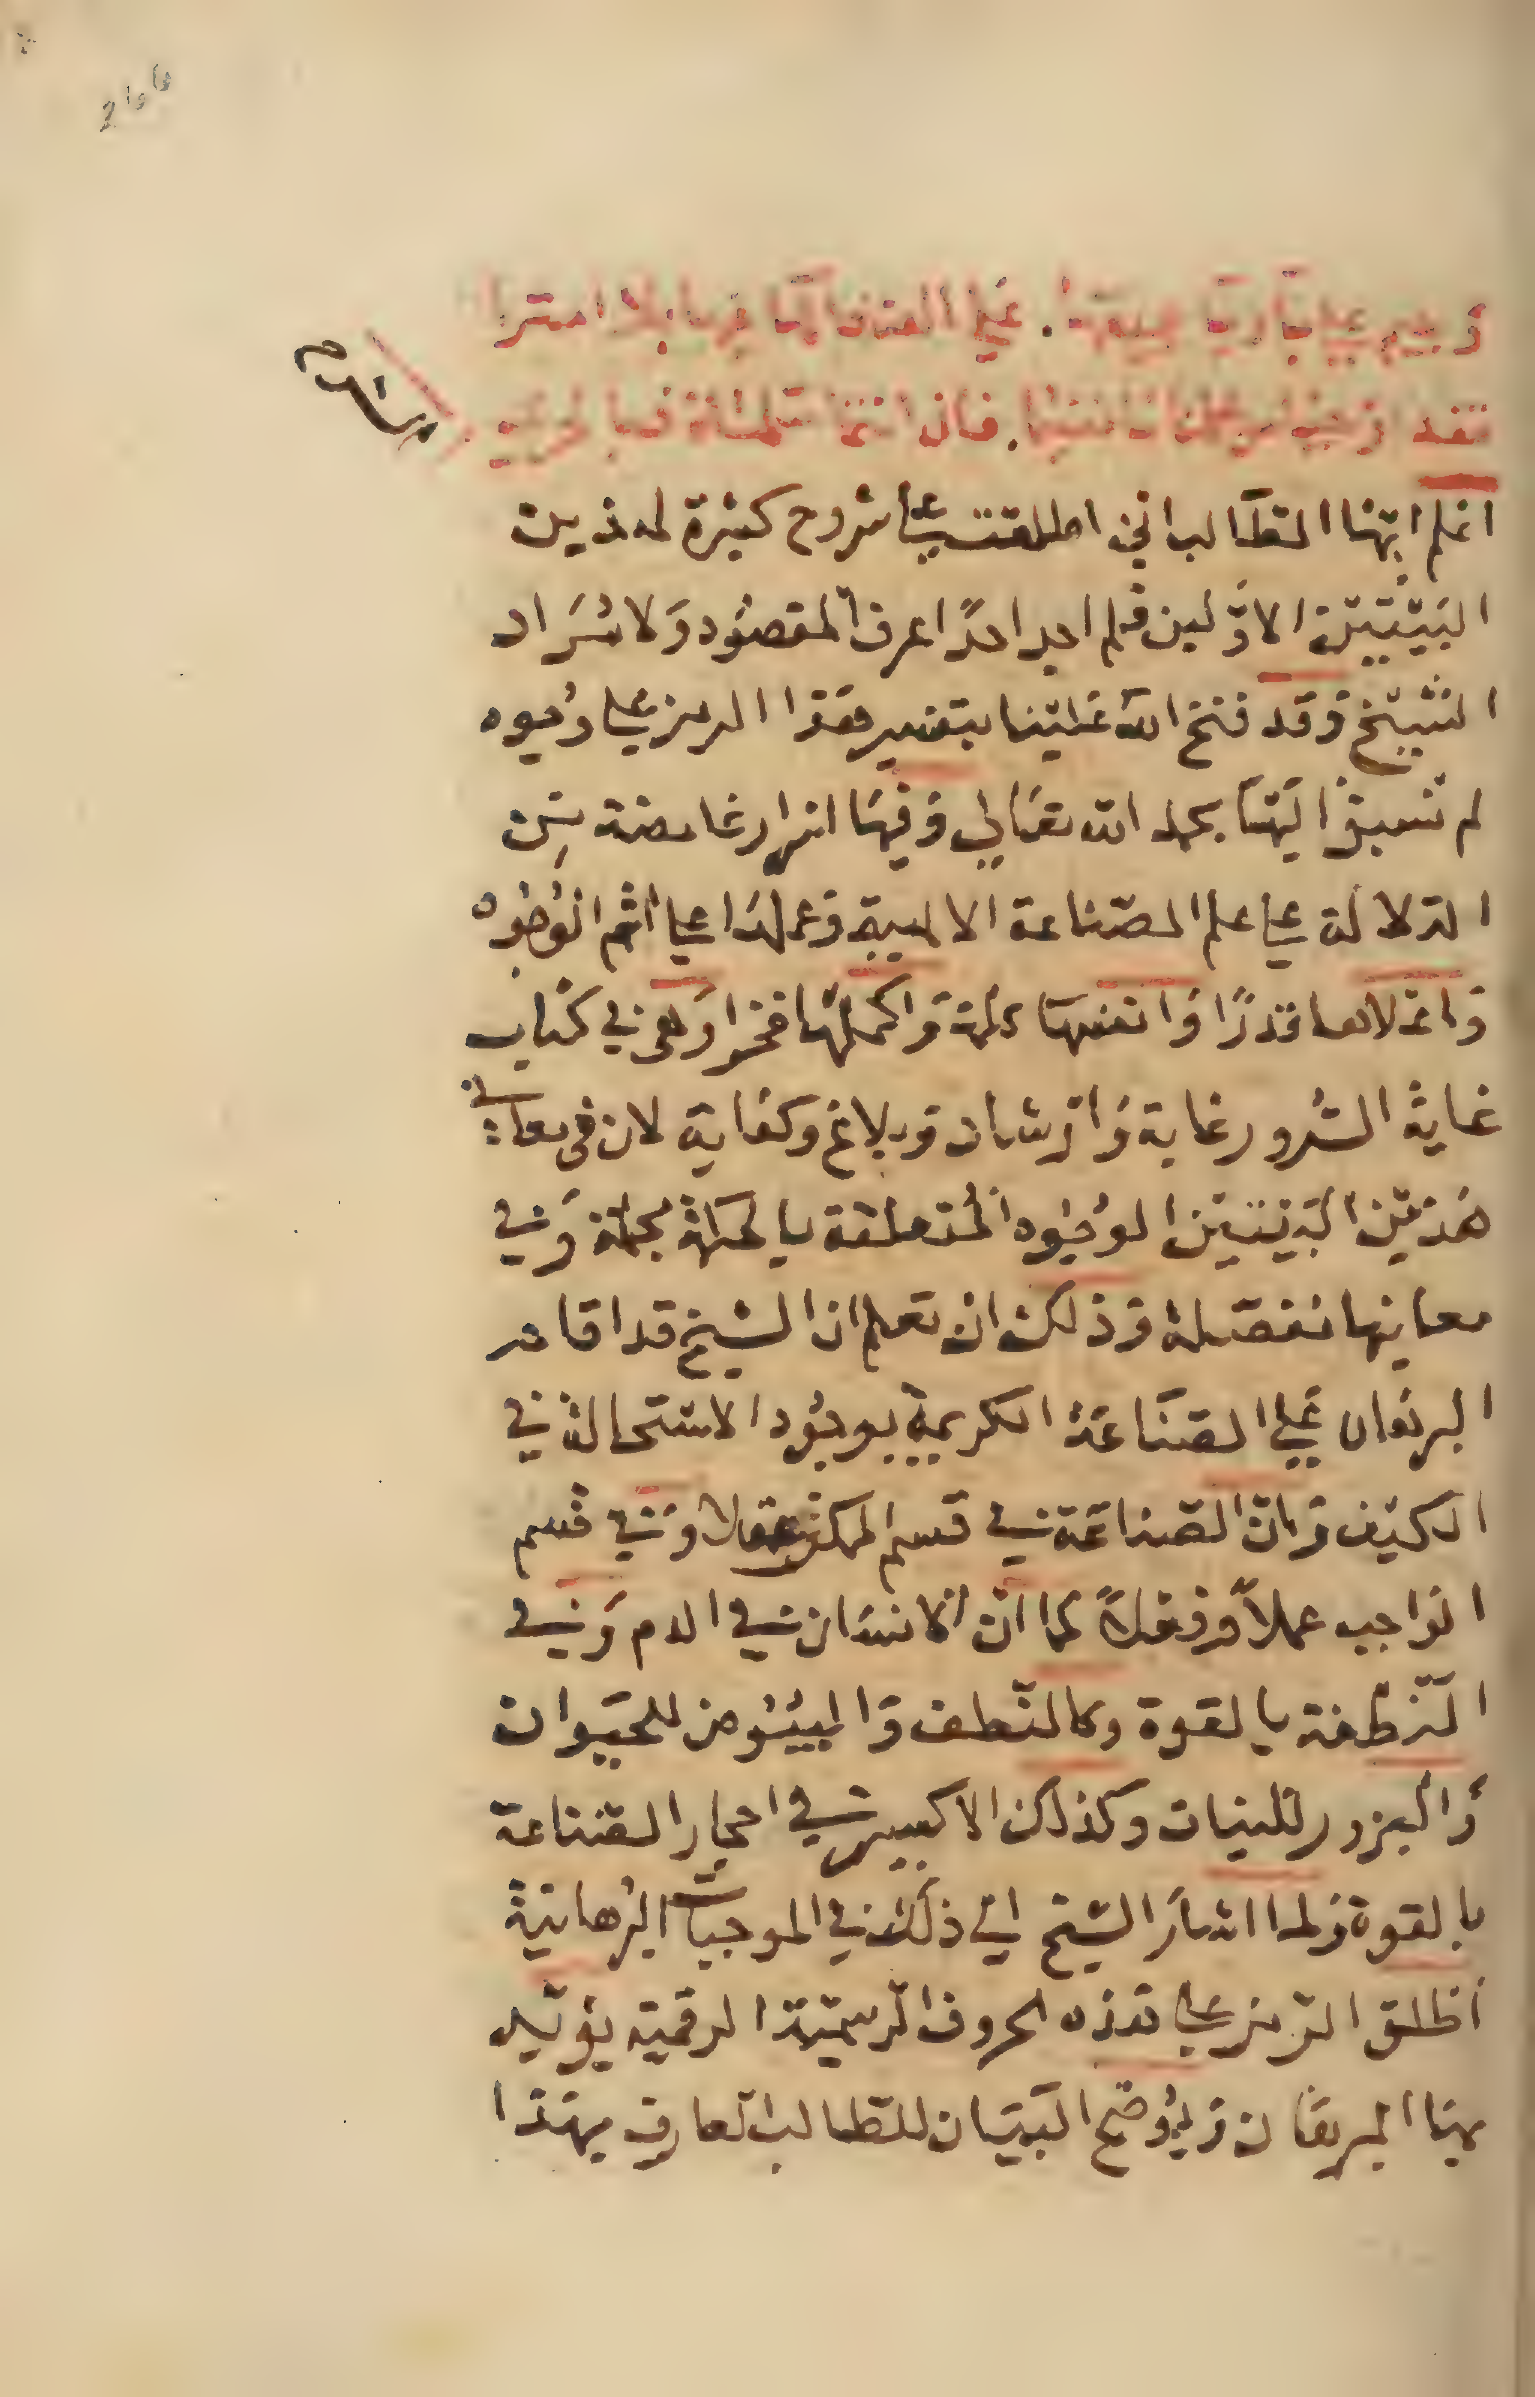 الشرح
اعلم ايها الطالب اني اطلعت على شروح كثيرة لهذين
البيتين الاولين فلم اجد احدًا عرف المقصود ولا مراد
الشيخ وقد فتح الله علينا بتفسير هذا الرمز على وجوه
لم نسبق اليها بحمد الله تعالى وفيها اسرار غامضة من
الدلالة على علم الصناعة الالهية وعملها على اتم الوجوه
واعلاها قدرًا وانفسها واكملها فخرا وهي في كتاب
غاية السرور غاية وارشاد وبلاغ وكفاية لان في معاني
هذين البيتين الوجوه المتعلقة بالحكمة مجملة وفي
معانيها مفصلة وذلك ان تعلم ان الشيخ قد اقام
البرهان على الصناعة الكريمة بوجود الاستحالة في
الكيف وان الصناعة في قسم الممكن عقلا وفي قسم
الواجب عملاً وفعلاً كما ان الانسان في الدم وفي
النطفة بالقوة وكالنطف والبيوض للحيوان
والبزور للنبات وكذلك الاكسير في احجار الصناعة
بالقوة ولما اشار الشيخ الى ذلك في الموجبات البرهانية
اطلق الرمز على هذه الحروف الرسمية الرقمية يؤيد
بها البرهان ويوضح البيان للطالب العارف بهذا